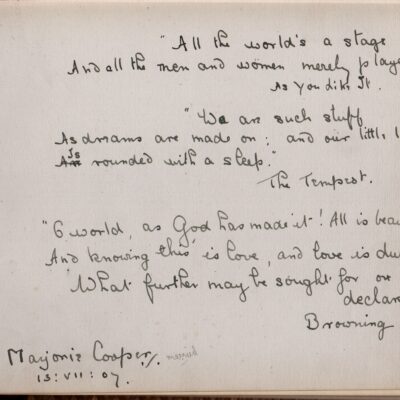 "All the world's a stage
And all the men and women merely playe
As You Like It.
"We are such stuff
As dreams are made on: and our little l
Is rounded with a sleep."
The Tempest.
"O world, as God has made it! All is beau
And knowing this is love, and love is du
What further may be sought for or
declar
Browning
Marjorie Cooper
married
13: VII: 07.